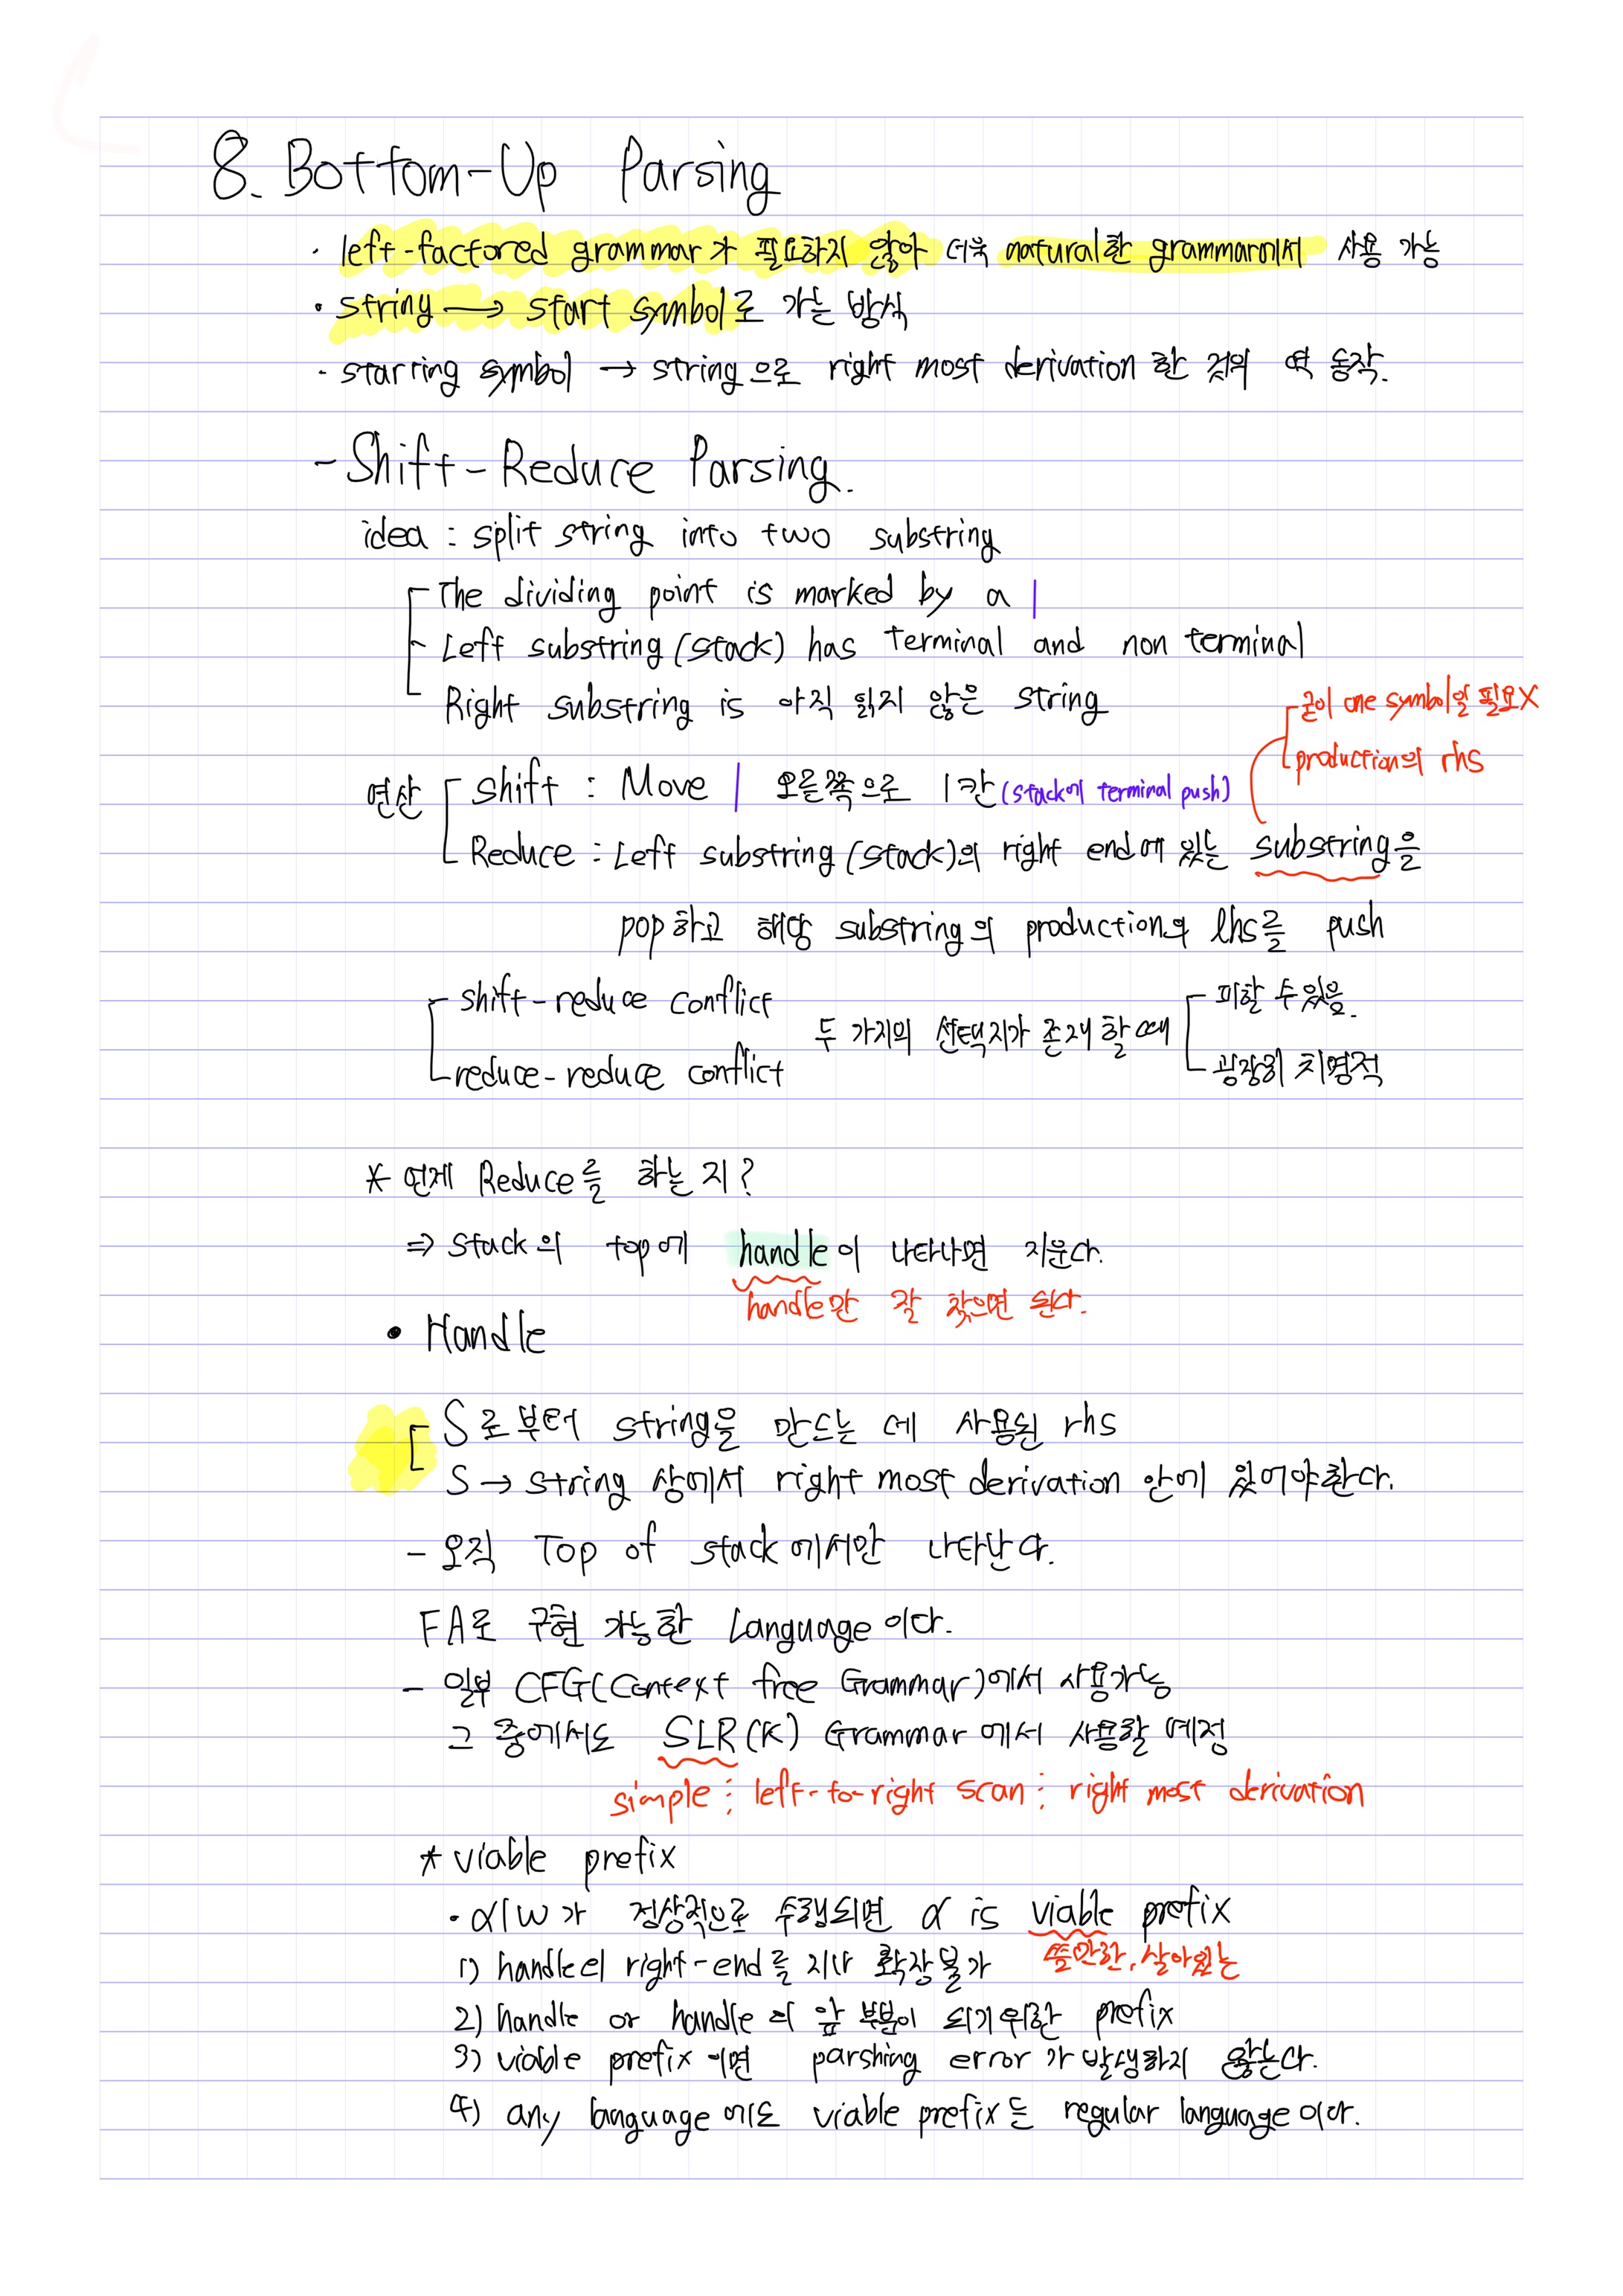 8. Bottom-Up Parsing
· left-factored grammar가 필요하지 않아 더욱 natural한 grammar에서 사용 가능
· string → start symbol로 가는 방식
· starring symbol → string으로 right most derivation 한 것의 역 동작.
- Shift-Reduce Parsing.
idea : split string into two substring
The dividing point is marked by a |
Left substring (stack) has terminal and non terminal
Right substring is 아직 읽지 않은 string
굳이 one symbol일 필요X
production의 rhs
연산
shift : Move | 오른쪽으로 1칸 (stack에 terminal push)
Reduce : Left substring (stack)의 right end에 있는 substring을
pop하고 해당 substring의 production의 lhs를 push
shift-reduce conflict
reduce-reduce conflict
두 가지의 선택지가 존재 할 때
피할 수 있음.
굉장히 치명적
* 언제 Reduce를 하는 지?
⇒ Stack의 top에 handle이 나타나면 지운다.
handle만 잘 찾으면 된다.
• Handle
S로부터 string을 만드는 데 사용된 rhs
S → string 상에서 right most derivation 안에 있어야한다.
- 오직 Top of stack에서만 나타난다.
FA로 구현 가능한 Language이다.
- 일부 CFG(Context free Grammar)에서 사용가능
그 중에서도 SLR(K) Grammar에서 사용할 예정
simple : left-to-right scan : right most derivation
* viable prefix
· α|w가 정상적으로 수행되면 α is viable prefix
쓸만한, 살아있는
1) handle의 right-end를 지나 확장불가
2) handle or handle의 앞 부분이 되기위한 prefix
3) viable prefix이면 parshing error가 발생하지 않는다.
4) any language에도 viable prefix는 regular language이다.